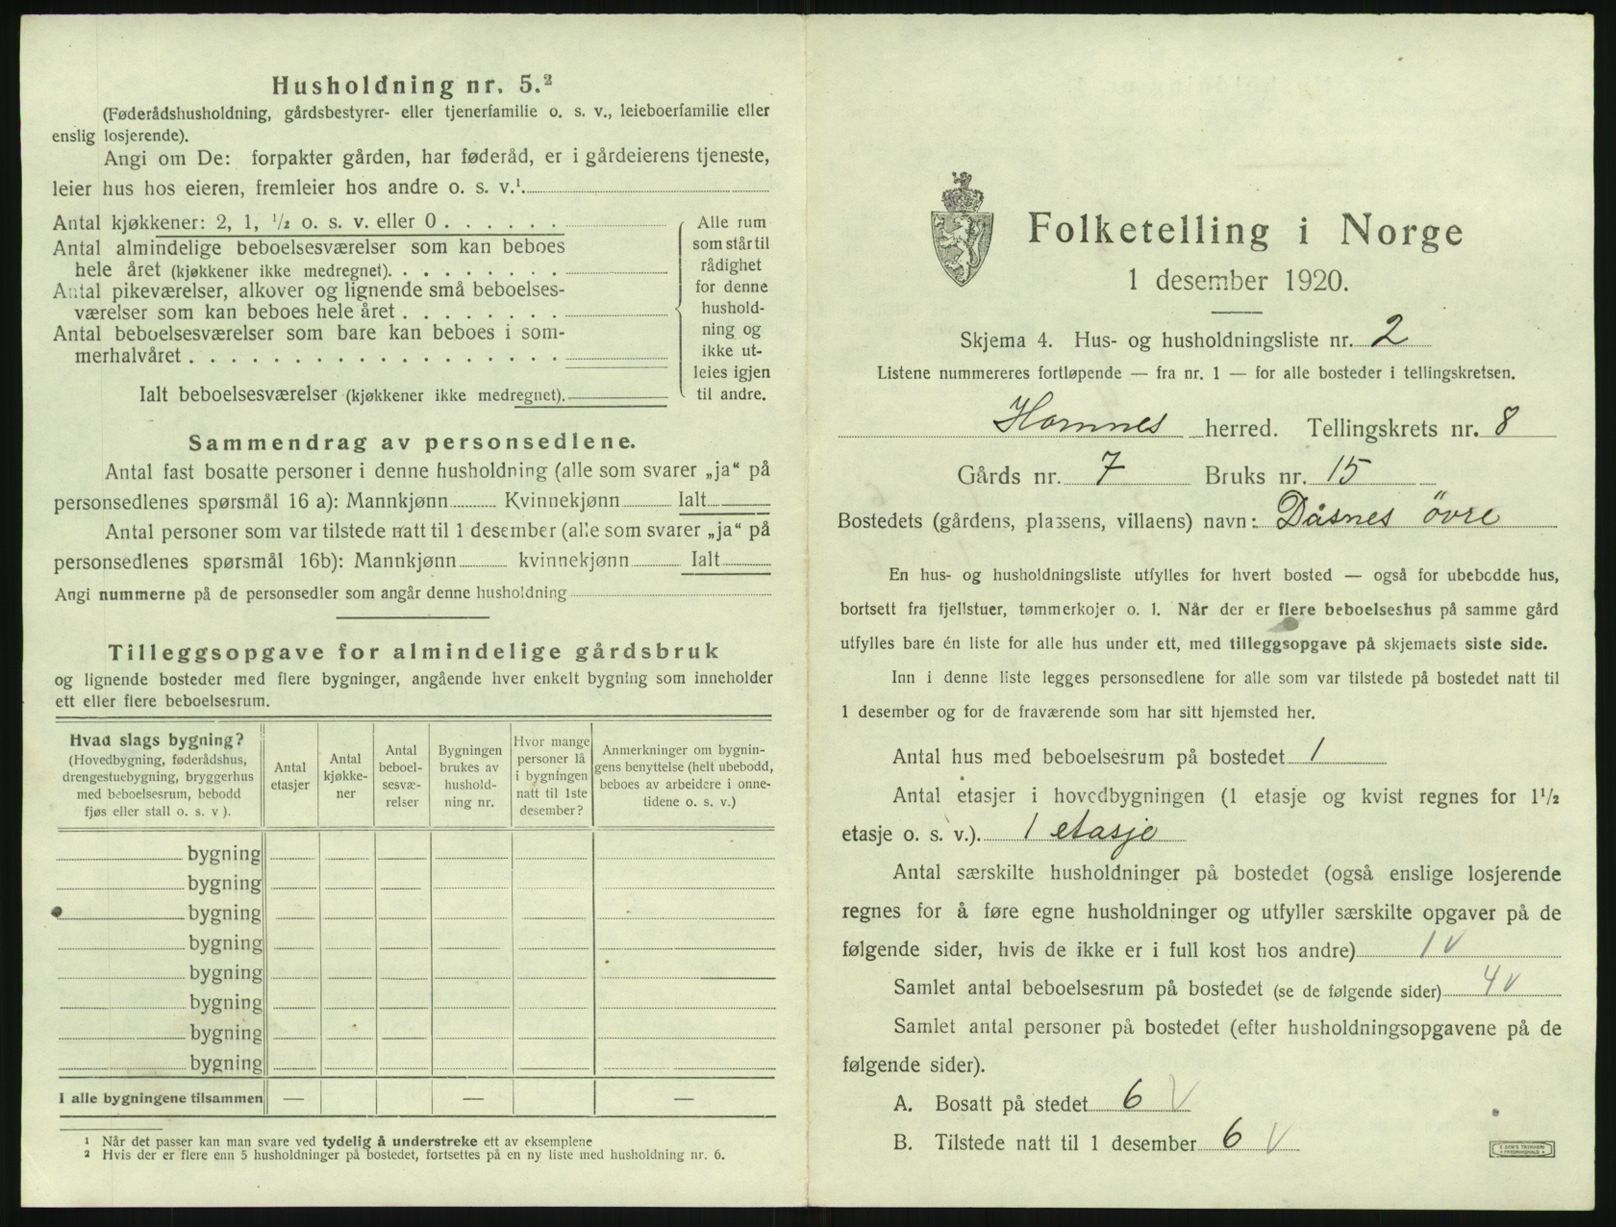 Husholdning nr. 5.²
(Føderådshusholdning, gårdsbestyrer- eller tjenerfamilie o. s. v., leieboerfamilie eller
enslig losjerende).
Angi om De: forpakter gården, har føderåd, er i gårdeierens tjeneste,
leier hus hos eieren, fremleier hos andre o. s. v.¹
Antal kjøkkener: 2, 1, ¹/₂ o. s. v. eller 0 . . . . . .
Antal almindelige beboelsesværelser som kan beboes
hele året (kjøkkener ikke medregnet). . . . . . . . .
Antal pikeværelser, alkover og lignende små beboelses-
værelser som kan beboes hele året . . . . . . . .
Antal beboelsesværelser som bare kan beboes i som-
merhalvåret . . . . . . . . . . . . . . . . . .
Ialt beboelsesværelser (kjøkkener ikke medregnet).
Alle rum
som står til
rådighet
for denne
hushold-
ning og
ikke ut-
leies igjen
til andre.
Sammendrag av personsedlene.
Antal fast bosatte personer i denne husholdning (alle som svarer „ja“ på
personsedlenes spørsmål 16 a): Mannkjønn Kvinnekjønn Ialt
Antal personer som var tilstede natt til 1 desember (alle som svarer „ja“ på
personsedlenes spørsmål 16b): Mannkjønn kvinnekjønn Ialt
Angi nummerne på de personsedler som angår denne husholdning
Tilleggsopgave for almindelige gårdsbruk
og lignende bosteder med flere bygninger, angående hver enkelt bygning som inneholder
ett eller flere beboelsesrum.
Hvad slags bygning?
(Hovedbygning, føderådshus,
drengestuebygning, bryggerhus
med beboelsesrum, bebodd
fjøs eller stall o. s. v ).
Antal
etasjer
Antal
kjøkke-
ner
Antal
beboel-
sesvæ-
relser
Bygningen
brukes av
hushold-
ning nr.
Hvor mange
personer lå
i bygningen
natt til 1ste
desember?
Anmerkninger om bygnin-
gens benyttelse (helt ubebodd,
beboes av arbeidere i onne-
tidene o. s. v.)
bygning
bygning
bygning
bygning
bygning
bygning
bygning
bygning
I alle bygningene tilsammen — — —
¹ Når det passer kan man svare ved tydelig å understreke ett av eksemplene
² Hvis der er flere enn 5 husholdninger på bostedet, fortsettes på en ny liste med husholdning nr. 6.
Folketelling i Norge
1 desember 1920.
Skjema 4. Hus- og husholdningsliste nr. 2
Listene nummereres fortløpende — fra nr. 1 — for alle bosteder i tellingskretsen.
Hornnes herred. Tellingskrets nr. 8
Gårds nr. 7 Bruks nr. 15
Bostedets (gårdens, plassens, villaens) navn: Dåsnes övre
En hus- og husholdningsliste utfylles for hvert bosted — også for ubebodde hus,
bortsett fra fjellstuer, tømmerkojer o. l. Når der er flere beboelseshus på samme gård
utfylles bare én liste for alle hus under ett, med tilleggsopgave på skjemaets siste side.
Inn i denne liste legges personsedlene for alle som var tilstede på bostedet natt til
1 desember og for de fraværende som har sitt hjemsted her.
Antal hus med beboelsesrum på bostedet 1
Antal etasjer i hovedbygningen (1 etasje og kvist regnes for 1¹/₂
etasje o. s. v.). 1 etasje
Antal særskilte husholdninger på bostedet (også enslige losjerende
regnes for å føre egne husholdninger og utfyller særskilte opgaver på de
følgende sider, hvis de ikke er i full kost hos andre) 1 v
Samlet antal beboelsesrum på bostedet (se de følgende sider) 4 v
Samlet antal personer på bostedet (efter husholdningsopgavene på de
følgende sider).
A. Bosatt på stedet 6 v
B. Tilstede natt til 1 desember 6 v